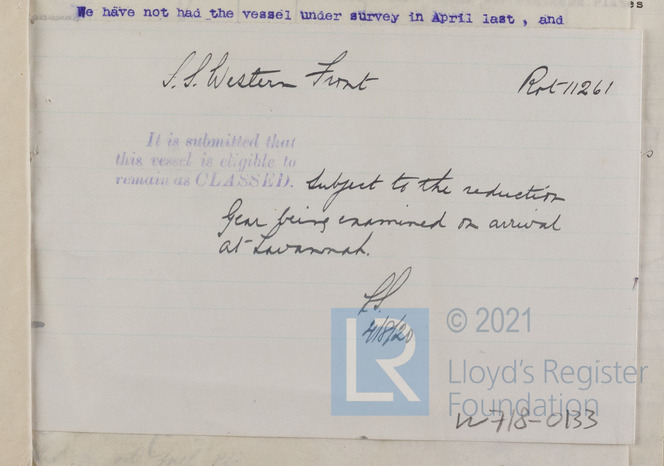 We have not had the vessel under survey in April last, and
S.S. Western Front Rot. 11261
It is submitted that
this vessel is eligible to
remain as CLASSED. Subject to the reduction
Gear being examined on arrival
at Savannah.
4/8/20
LR
© 2021
Lloyd's Register
Foundation
W718-0133